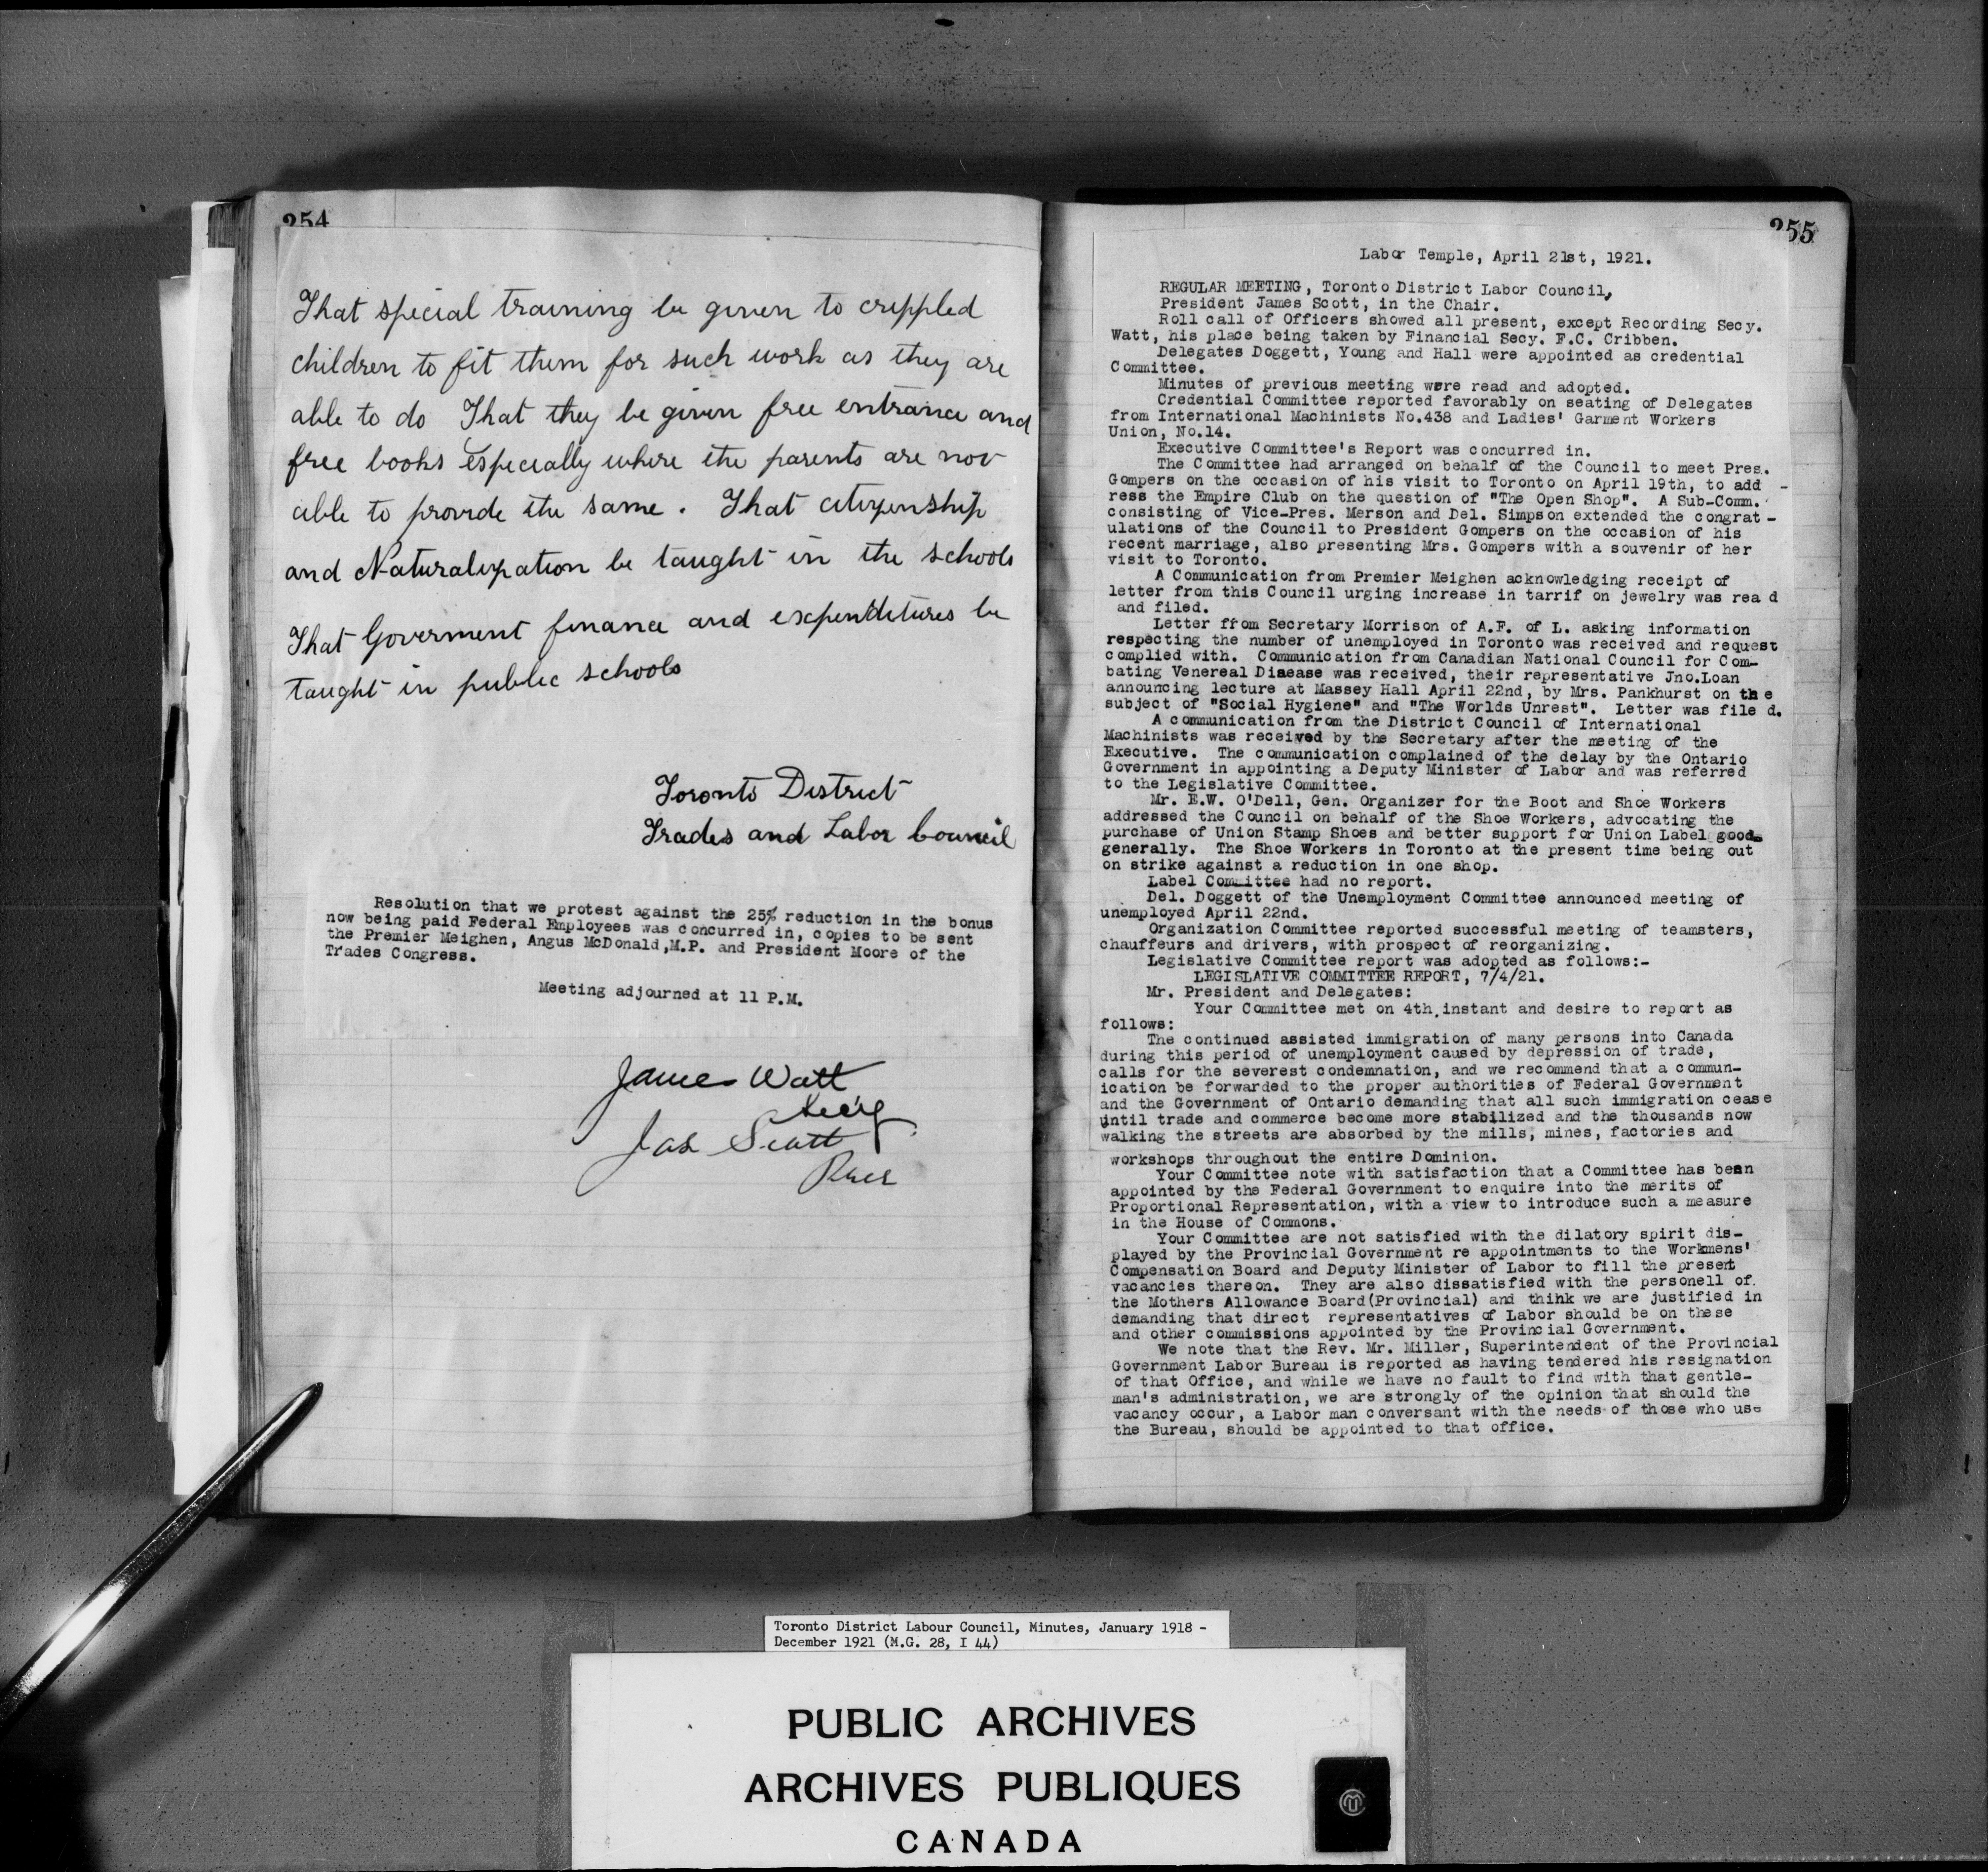 254
That special training be given to crippled
children to fit them for such work as they are
able to do That they be given free entrance and
free books Especially where the parents are not
able to provide the same. That citizenship
and Naturalization be taught in the schools
That Goverment finance and expenditures be
taught in public schools
Toronto District
Trades and Labor Council
Resolution that we protest against the 25% reduction in the bonus
now being paid Federal Employees was concurred in, copies to be sent
the Premier Meighen, Angus McDonald,M.P. and President Moore of the
Trades Congress.
Meeting adjourned at 11 P.M.
James Watt
Sec'y
Jas Scott
Pres
255
Labor Temple, April 21st, 1921.
REGULAR MEETING, Toronto District Labor Council,
President James Scott, in the Chair.
Roll call of Officers showed all present, except Recording Secy.
Watt, his place being taken by Financial Secy. F.C. Cribben.
Delegates Doggett, Young and Hall were appointed as credential
Committee.
Minutes of previous meeting were read and adopted.
Credential Committee reported favorably on seating of Delegates
from International Machinists No.438 and Ladies' Garment Workers
Union, No.14.
Executive Committee's Report was concurred in.
The Committee had arranged on behalf of the Council to meet Pres.
Gompers on the occasion of his visit to Toronto on April 19th, to add -
ress the Empire Club on the question of "The Open Shop". A Sub-Comm.
consisting of Vice-Pres. Merson and Del. Simpson extended the congrat -
ulations of the Council to President Gompers on the occasion of his
recent marriage, also presenting Mrs. Gompers with a souvenir of her
visit to Toronto.
A Communication from Premier Meighen acknowledging receipt of
letter from this Council urging increase in tarrif on jewelry was rea d
and filed.
Letter from Secretary Morrison of A.F. of L. asking information
respecting the number of unemployed in Toronto was received and request
complied with. Communication from Canadian National Council for Com-
bating Venereal Disease was received, their representative Jno.Loan
announcing lecture at Massey Hall April 22nd, by Mrs. Pankhurst on the
subject of "Social Hygiene" and "The Worlds Unrest". Letter was file d.
A communication from the District Council of International
Machinists was received by the Secretary after the meeting of the
Executive. The communication complained of the delay by the Ontario
Government in appointing a Deputy Minister of Labor and was referred
to the Legislative Committee.
Mr. E.W. O'Dell, Gen. Organizer for the Boot and Shoe Workers
addressed the Council on behalf of the Shoe Workers, advocating the
purchase of Union Stamp Shoes and better support for Union Label goods
generally. The Shoe Workers in Toronto at the present time being out
on strike against a reduction in one shop.
Label Committee had no report.
Del. Doggett of the Unemployment Committee announced meeting of
unemployed April 22nd.
Organization Committee reported successful meeting of teamsters,
chauffeurs and drivers, with prospect of reorganizing.
Legislative Committee report was adopted as follows:-
LEGISLATIVE COMMITTEE REPORT, 7/4/21.
Mr. President and Delegates:
Your Committee met on 4th.instant and desire to report as
follows:
The continued assisted immigration of many persons into Canada
during this period of unemployment caused by depression of trade,
calls for the severest condemnation, and we recommend that a commun-
ication be forwarded to the proper authorities of Federal Government
and the Government of Ontario demanding that all such immigration cease
until trade and commerce become more stabilized and the thousands now
walking the streets are absorbed by the mills, mines, factories and
workshops throughout the entire Dominion.
Your Committee note with satisfaction that a Committee has been
appointed by the Federal Government to enquire into the merits of
Proportional Representation, with a view to introduce such a measure
in the House of Commons.
Your Committee are not satisfied with the dilatory spirit dis-
played by the Provincial Government re appointments to the Workmens'
Compensation Board and Deputy Minister of Labor to fill the present
vacancies thereon. They are also dissatisfied with the personell of
the Mothers Allowance Board(Provincial) and think we are justified in
demanding that direct representatives of Labor should be on these
and other commissions appointed by the Provincial Government.
We note that the Rev. Mr. Miller, Superintendent of the Provincial
Government Labor Bureau is reported as having tendered his resignation
of that Office, and while we have no fault to find with that gentle-
man's administration, we are strongly of the opinion that should the
vacancy occur, a Labor man conversant with the needs of those who use
the Bureau, should be appointed to that office.
Toronto District Labour Council, Minutes, January 1918 -
December 1921 (M.G. 28, I 44)
PUBLIC ARCHIVES
ARCHIVES PUBLIQUES
CANADA